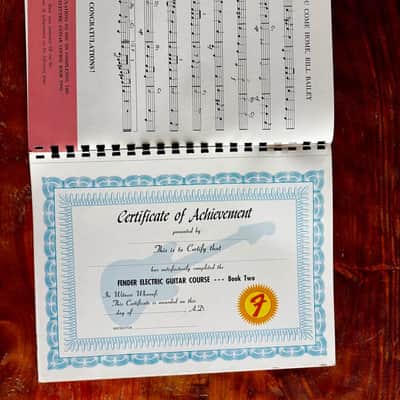 COME HOME, BILL BAILEY
CONGRATULATIONS!
Certificate of Achievement
presented by
This is to Certify that
has satisfactorily completed the
FENDER ELECTRIC GUITAR COURSE --- Book Two
In Witness Whereof,
This Certificate is awarded on this
day of A.D.
F